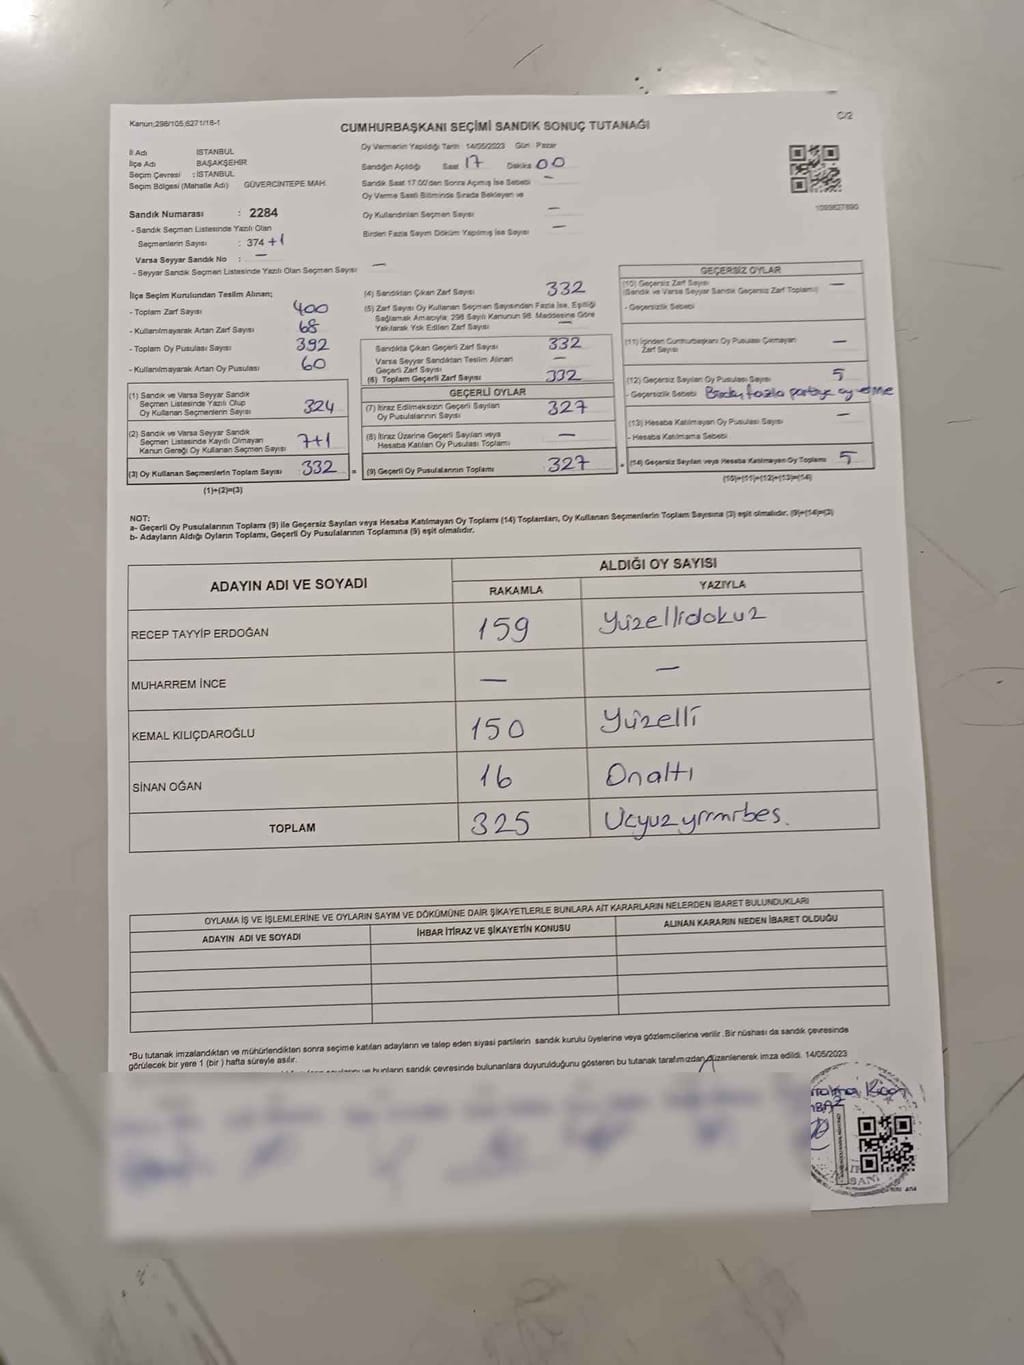 Kanun;298/105,6271/18-1
C/2
CUMHURBAŞKANI SEÇİMİ SANDIK SONUÇ TUTANAĞI
İl Adı İSTANBUL
İlçe Adı BAŞAKŞEHİR
Seçim Çevresi : İSTANBUL
Seçim Bölgesi (Mahalle Adı) GÜVERCİNTEPE MAH.
Oy Vermenin Yapıldığı Tarih : 14/05/2023 Gün : Pazar
Sandığın Açıldığı Saat 17 Dakika 00
Sandık Saat 17:00'dan Sonra Açılmış İse Sebebi —
Oy Verme Saati Bitiminde Sırada Bekleyen ve
Oy Kullandırılan Seçmen Sayısı —
Birden Fazla Sayım Döküm Yapılmış İse Sayısı —
1099827890
Sandık Numarası : 2284
- Sandık Seçmen Listesinde Yazılı Olan
Seçmenlerin Sayısı : 374 +1
Varsa Seyyar Sandık No : —
- Seyyar Sandık Seçmen Listesinde Yazılı Olan Seçmen Sayısı —
İlçe Seçim Kurulundan Teslim Alınan;
- Toplam Zarf Sayısı 400
- Kullanılmayarak Artan Zarf Sayısı 68
- Toplam Oy Pusulası Sayısı 392
- Kullanılmayarak Artan Oy Pusulası 60
(1) Sandık ve Varsa Seyyar Sandık
Seçmen Listesinde Yazılı Olup
Oy Kullanan Seçmenlerin Sayısı 324
(2) Sandık ve Varsa Seyyar Sandık
Seçmen Listesinde Kayıtlı Olmayan
Kanun Gereği Oy Kullanan Seçmen Sayısı 7+1
(3) Oy Kullanan Seçmenlerin Toplam Sayısı 332 =
(1)+(2)=(3)
(4) Sandıktan Çıkan Zarf Sayısı 332
(5) Zarf Sayısı Oy Kullanan Seçmen Sayısından Fazla İse, Eşitliği
Sağlamak Amacıyla; 298 Sayılı Kanunun 98. Maddesine Göre
Yakılarak Yok Edilen Zarf Sayısı —
Sandıkta Çıkan Geçerli Zarf Sayısı 332
Varsa Seyyar Sandıktan Teslim Alınan
Geçerli Zarf Sayısı —
(6) Toplam Geçerli Zarf Sayısı 332
GEÇERLİ OYLAR
(7) İtiraz Edilmeksizin Geçerli Sayılan
Oy Pusulalarının Sayısı 327
(8) İtiraz Üzerine Geçerli Sayılan veya
Hesaba Katılan Oy Pusulası Toplamı —
(9) Geçerli Oy Pusulalarının Toplamı 327 +
GEÇERSİZ OYLAR
(10) Geçersiz Zarf Sayısı —
(Sandık ve Varsa Seyyar Sandık Geçersiz Zarf Toplamı)
- Geçersizlik Sebebi
(11) İçinden Cumhurbaşkanı Oy Pusulası Çıkmayan
Zarf Sayısı —
(12) Geçersiz Sayılan Oy Pusulası Sayısı 5
- Geçersizlik Sebebi Birden fazla partiye oy verme
(13) Hesaba Katılmayan Oy Pusulası Sayısı —
- Hesaba Katılmama Sebebi
(14) Geçersiz Sayılan veya Hesaba Katılmayan Oy Toplamı 5
(10)+(11)+(12)+(13)=(14)
NOT:
a- Geçerli Oy Pusulalarının Toplamı (9) ile Geçersiz Sayılan veya Hesaba Katılmayan Oy Toplamı (14) Toplamları, Oy Kullanan Seçmenlerin Toplam Sayısına (3) eşit olmalıdır. (9)+(14)=(3)
b- Adayların Aldığı Oyların Toplamı, Geçerli Oy Pusulalarının Toplamına (9) eşit olmalıdır.
ADAYIN ADI VE SOYADI ALDIĞI OY SAYISI
RAKAMLA YAZIYLA
RECEP TAYYİP ERDOĞAN 159 Yüzellidokuz
MUHARREM İNCE — —
KEMAL KILIÇDAROĞLU 150 Yüzelli
SİNAN OĞAN 16 Onaltı
TOPLAM 325 Ucyuzyirmibes.
OYLAMA İŞ VE İŞLEMLERİNE VE OYLARIN SAYIM VE DÖKÜMÜNE DAİR ŞİKAYETLERLE BUNLARA AİT KARARLARIN NELERDEN İBARET BULUNDUKLARI
ADAYIN ADI VE SOYADI İHBAR İTİRAZ VE ŞİKAYETİN KONUSU ALINAN KARARIN NEDEN İBARET OLDUĞU
*Bu tutanak imzalandıktan ve mühürlendikten sonra seçime katılan adayların ve talep eden siyasi partilerin sandık kurulu üyelerine veya gözlemcilerine verilir. Bir nüshası da sandık çevresinde
görülecek bir yere 1 (bir) hafta süreyle asılır.
bunların sandık çevresinde bulunanlara duyurulduğunu gösteren bu tutanak tarafımızdan düzenlenerek imza edildi. 14/05/2023